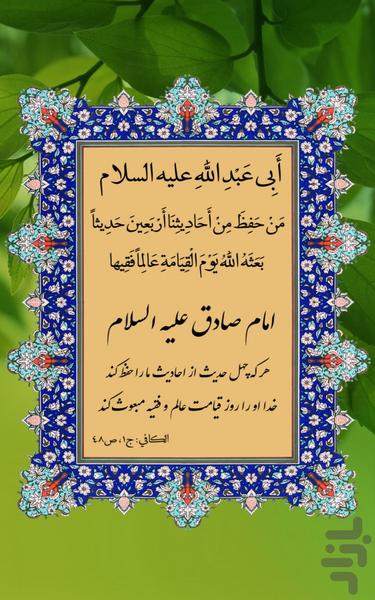 أَبِی عَبْدِ اللَّهِ علیه السلام
مَنْ حَفِظَ مِنْ أَحَادِیثِنَا أَرْبَعِینَ حَدِیثاً
بَعَثَهُ اللَّهُ یَوْمَ الْقِیَامَةِ عَالِماً فَقِیهاً
امام صادق علیه السلام
هر که چهل حدیث از احادیث ما را حفظ کند
خدا او را روز قیامت عالم و فقیه مبعوث کند
الکافی: ج۱، ص۴۸
بازار